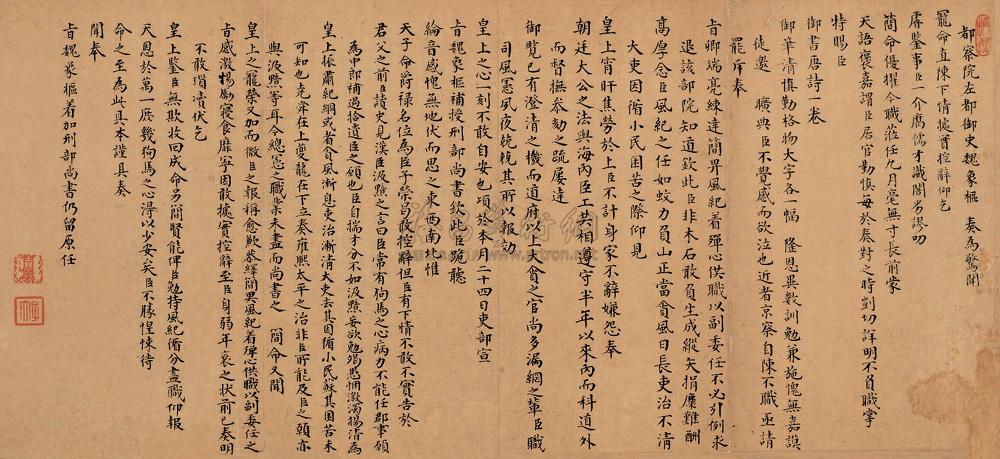 都察院左都御史魏象樞 奏為驚聞
寵命直陳下情據實控辭仰乞
睿鑒事臣一介庸儒才識闇劣謬叨
簡命優擢今職蒞任九月毫無寸長前蒙
天語褒嘉謂臣居官勤慎每於奏對之時剴切詳明不負職掌
特賜臣
御書唐詩一卷
御筆清慎勤格物大字各一幅 隆恩異數訓勉兼施愧無嘉謨
徒邀 曠典臣不覺感而欲泣也近者京察自陳不職亟請
罷斥奉
旨卿端亮練達簡畀風紀着殫心供職以副委任不必引例求
退該部院知道欽此臣非木石敢負生成縱矢捐糜難酬
高厚念臣風紀之任如蚊力負山正當貪風日長吏治不清
大吏因循小民困苦之際仰見
皇上宵旰焦勞於上臣不計身家不辭嫌怨奉
朝廷大公之法與海內臣工共相遵守半年以來內而科道外
而督撫參劾之疏屢達
御覽已有澄清之機而道府以上貪之官尚多漏網之輩臣職
司風憲夙夜兢兢其所以報効
皇上之心一刻不敢自安也頃於本月二十四日吏部宣
旨魏象樞補授刑部尚書欽此臣跪聽
綸音感愧無地伏而思之東西南北惟
天子命爵祿名位為臣子榮安敢控辭但臣有下情不敢不實告於
君父之前臣讀史見漢臣汲黯之言曰臣常有狗馬之心病力不能任郡事願
為中郎補過拾遺臣之願也臣自揣才分不如汲黯妄欲勉竭悃激濁揚清為
皇上振肅紀綱或者貪風漸息吏治漸清大吏去其因循小民蘇其困苦未
可知也堯舜在上夔龍在下立奏雍熙太平之治非臣所能及臣之願亦
與汲黯等耳今總憲之職業未盡而尚書之 簡命又聞
皇上之寵榮又加而微臣之報稱愈歉恭繹簡畀風紀着殫心供職以副委任之
旨感激惕勵寢食靡寧因敢據實控辭至臣身弱年衰之狀前已奏明
不敢瑣瀆伏乞
皇上鑒臣無欺收回成命另簡賢能俾臣勉持風紀循分盡職仰報
天恩於萬一庶幾狗馬之心得以少安矣臣不勝惶悚待
命之至為此具本謹具奏
聞奉
旨魏象樞着加刑部尚書仍留原任